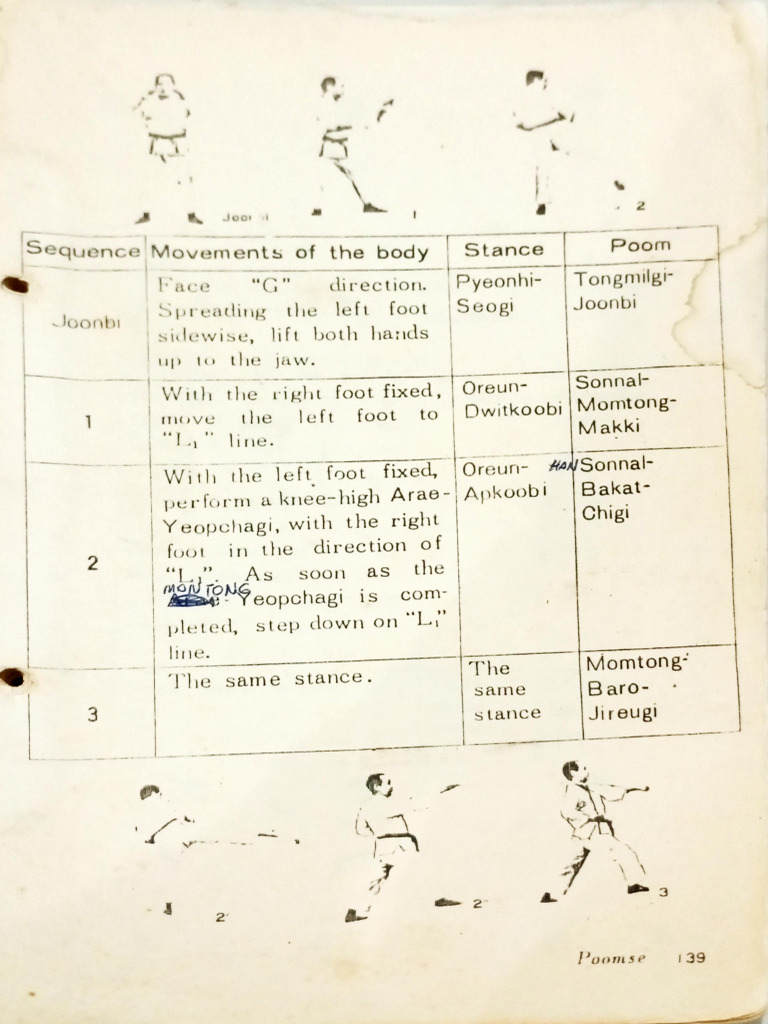 Joonbi
1
2
Sequence Movements of the body Stance Poom
Joonbi
Face "G" direction.
Spreading the left foot
sidewise, lift both hands
up to the jaw.
Pyeonhi-
Seogi
Tongmilgi-
Joonbi
1
With the right foot fixed,
move the left foot to
"L₁" line.
Oreun-
Dwitkoobi
Sonnal-
Momtong-
Makki
2
With the left foot fixed,
perform a knee-high Arae-
Yeopchagi, with the right
foot in the direction of
"L₁". As soon as the
MOMTONG
Yeopchagi is com-
pleted, step down on "L₁"
line.
Oreun-
Apkoobi
HAN Sonnal-
Bakat-
Chigi
3
The same stance.
The
same
stance
Momtong-
Baro-
Jireugi
2'
2"
3
Poomse 139